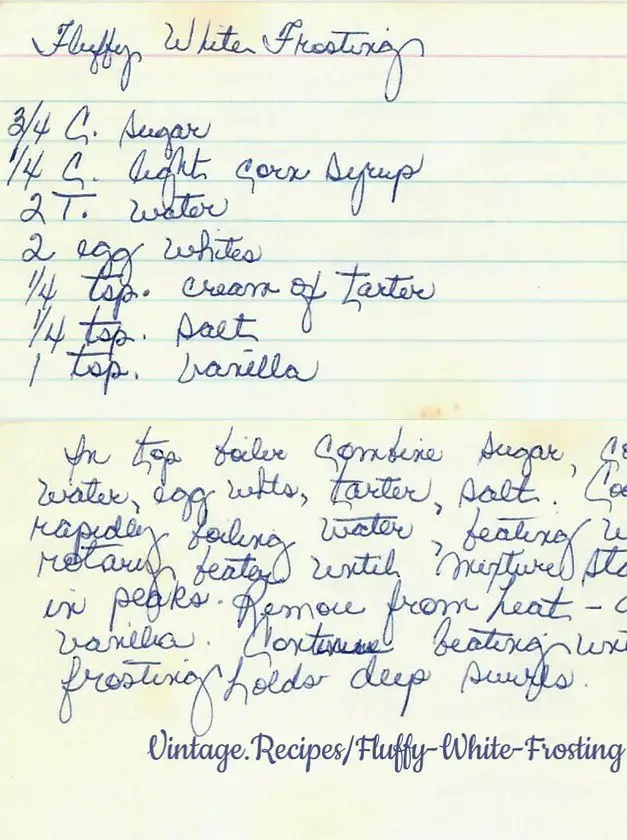 Fluffy White Frosting
3/4 C. sugar
1/4 C. light corn syrup
2 T. water
2 egg whites
1/4 tsp. cream of tarter
1/4 tsp. salt
1 tsp. vanilla
In top boiler combine sugar, co
water, egg whts, tarter, salt. Coo
rapidly boiling water, beating w
rotary beater until mixture sta
in peaks. Remove from heat - a
vanilla. Continue beating unt
frosting holds deep swirls.
Vintage.Recipes/Fluffy-White-Frosting